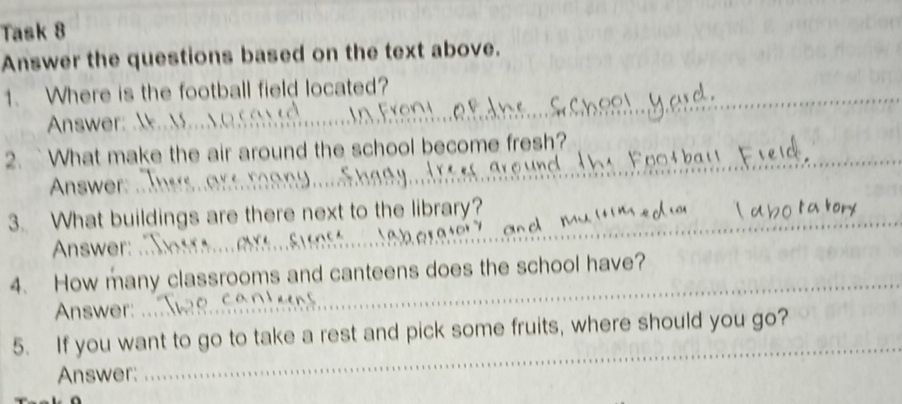 Task 8
Answer the questions based on the text above.
1. Where is the football field located?
Answer: It is located in front of the school yard.
2. What make the air around the school become fresh?
Answer: There are many shady trees around the football field.
3. What buildings are there next to the library?
Answer: are sience laboratory and laboratory
4. How many classrooms and canteens does the school have?
Answer: Two canteens
5. If you want to go to take a rest and pick some fruits, where should you go?
Answer: